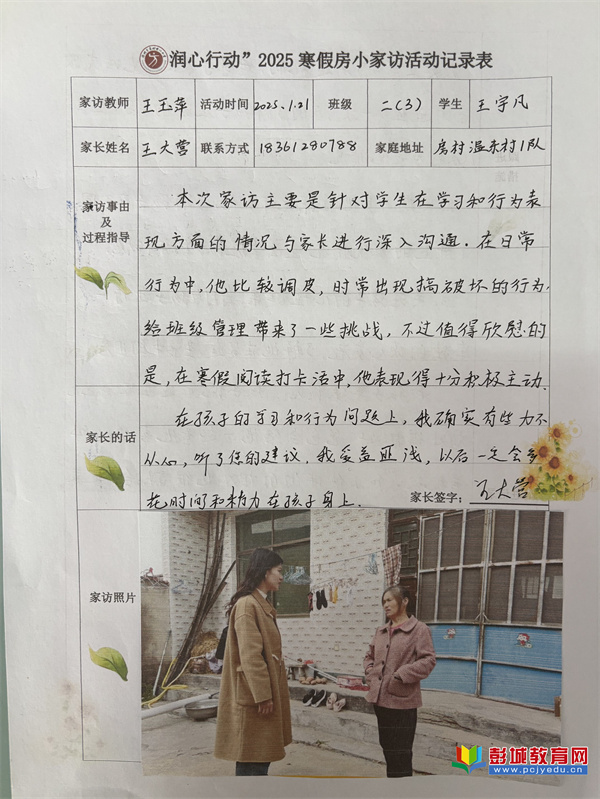 润心行动”2025寒假房小家访活动记录表
家访教师 王玉萍 活动时间 2025.1.21 班级 二(3) 学生 王宇凡
家长姓名 王大营 联系方式 18361280788 家庭地址 房村温东村1队
家访事由
及
过程指导
本次家访主要是针对学生在学习和行为表
现方面的情况与家长进行深入沟通.在日常
行为中,他比较调皮,时常出现搞破坏的行为,
给班级管理带来了一些挑战,不过值得欣慰的
是,在寒假阅读打卡活中,他表现得十分积极主动.
家长的话
在孩子的学习和行为问题上,我确实有些力不
从心,听了您的建议.我受益匪浅,以后一定会多
花时间和精力在孩子身上.
家长签字: 王大营
家访照片
彭城教育网
www.pcjyedu.cn